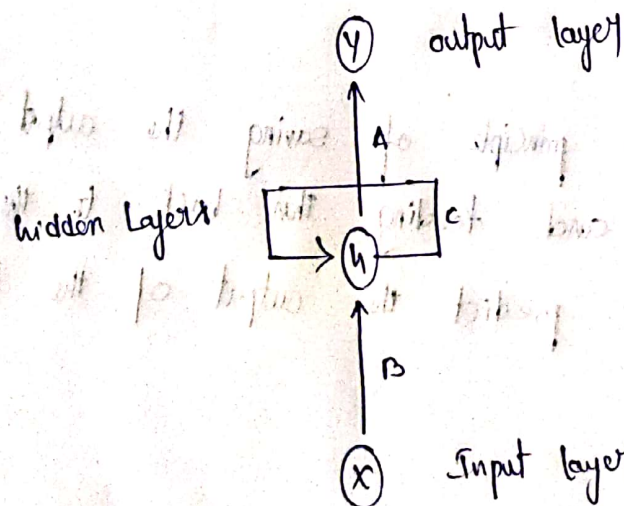 Y output layer
A
hidden Layers
C
h
B
X Input layer